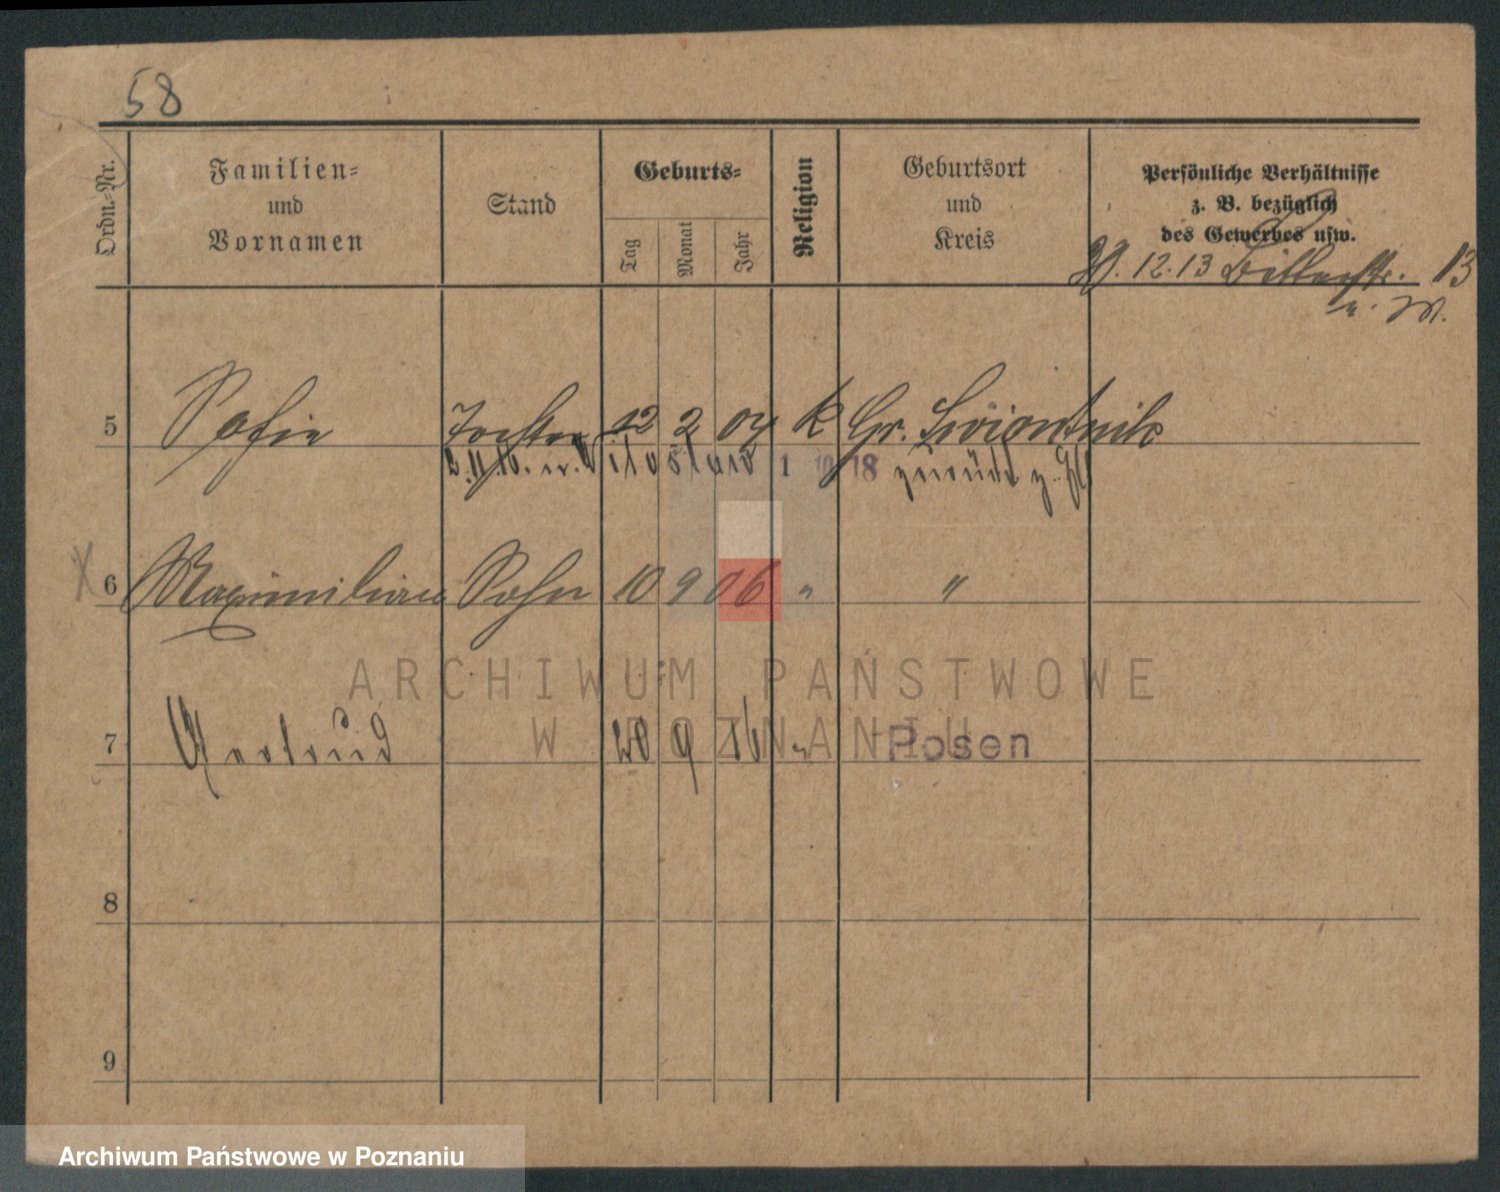 58
Ordn.-Nr.
Familien-
und
Vornamen
Stand
Geburts-
Tag
Monat
Jahr
Religion
Geburtsort
und
Kreis
Persönliche Verhältnisse
z. B. bezüglich
des Gewerbes usw.
12.13 13
5 Sofie Tochter 12 2 04 k Gr.
1 10 18 zurück
6 Maximilian Sohn 10 9 06 " "
ARCHIWUM PAŃSTWOWE
W POZNANIU
7 Gertrud 20 9 16 " Posen
8
9
Archiwum Państwowe w Poznaniu